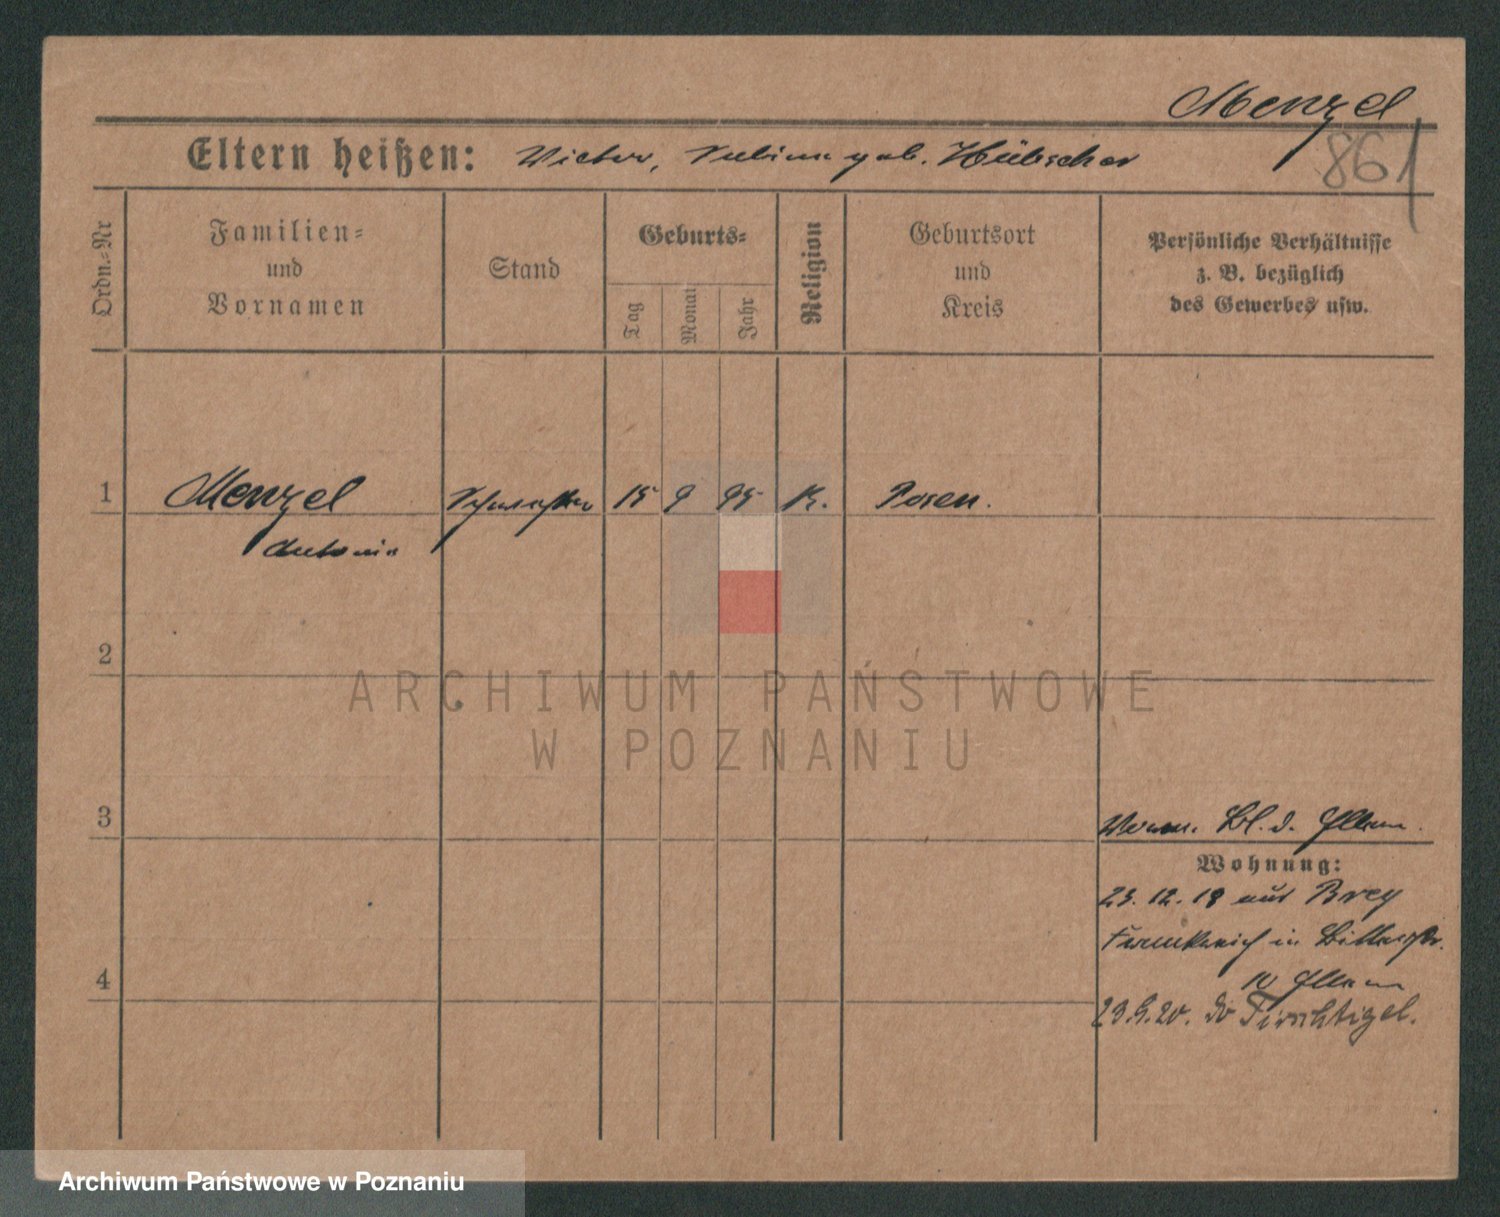 Menzel
861
Eltern heißen: Victor, geb. Hübscher
Ordn.-Nr
Familien-
und
Vornamen
Stand
Geburts-
Tag
Monat
Jahr
Religion
Geburtsort
und
Kreis
Persönliche Verhältnisse
z. B. bezüglich
des Gewerbes usw.
1
Menzel
15 9 95 K. Posen.
Antonie
2
ARCHIWUM PAŃSTWOWE
W POZNANIU
3
Wohnung:
23. 12. 18 aus Brey
Frankreich in
4
23.9.20. Tirschtigel.
Archiwum Państwowe w Poznaniu